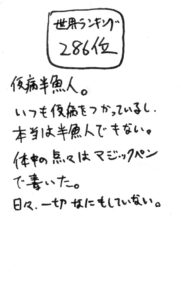 世界ランキング
286位
仮病半魚人。
いつも仮病をつかっているし、
本当は半魚人でもない。
体中の点々はマジックペン
で書いた。
日々、一切なにもしていない。